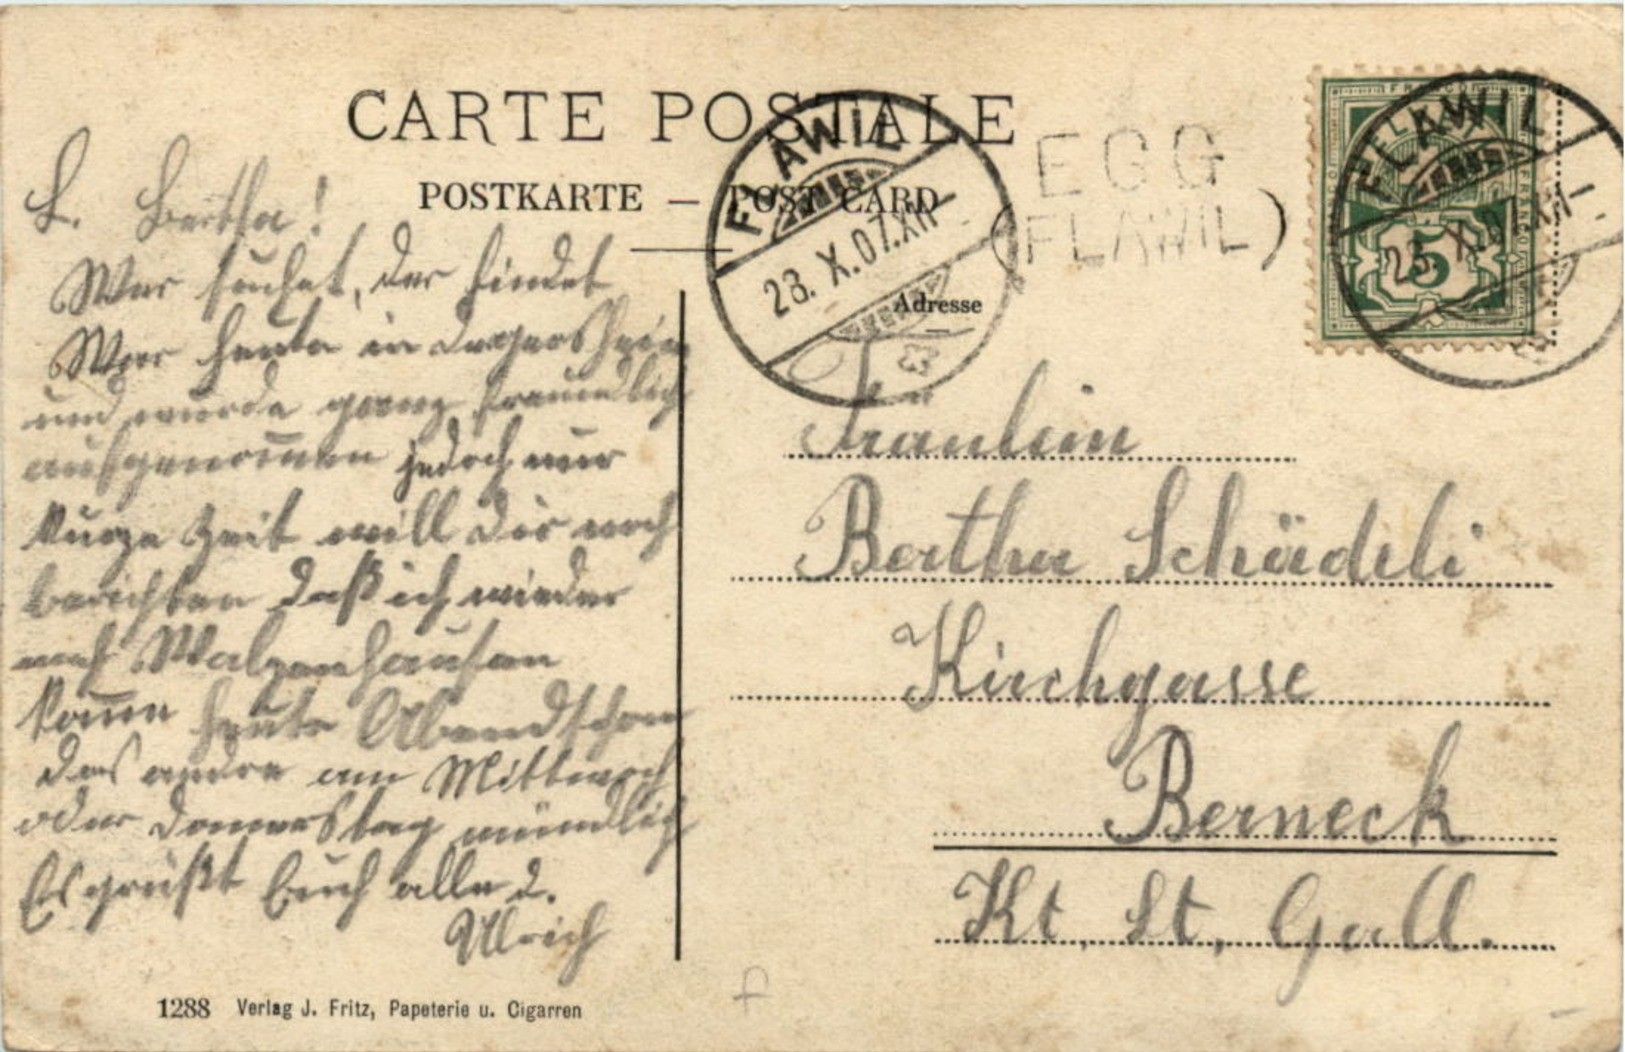 CARTE POSTALE
POSTKARTE — POST CARD
FLAWIL
23. X. 07. XII
EGG
(FLAWIL)
FRANCO
HELVETIA
5
FLAWIL
23. X. 07. XII
Adresse
L. Bertha!
Wer suchet, der findet
War heute in Degersheim
und wurde ganz freundlich
aufgenom̅en jedoch nur
kurze Zeit will Dir noch
berichten daß ich wieder
nach Walzenhausen
kom̅e heute Abend schon
das andre am Mittwoch
oder Donnerstag mündlich
Es grüßt Euch alle
Ulrich
Fräulein
Bertha Schädeli
Kirchgasse
Berneck
Kt. St. Gall.
1288 Verlag J. Fritz, Papeterie u. Cigarren